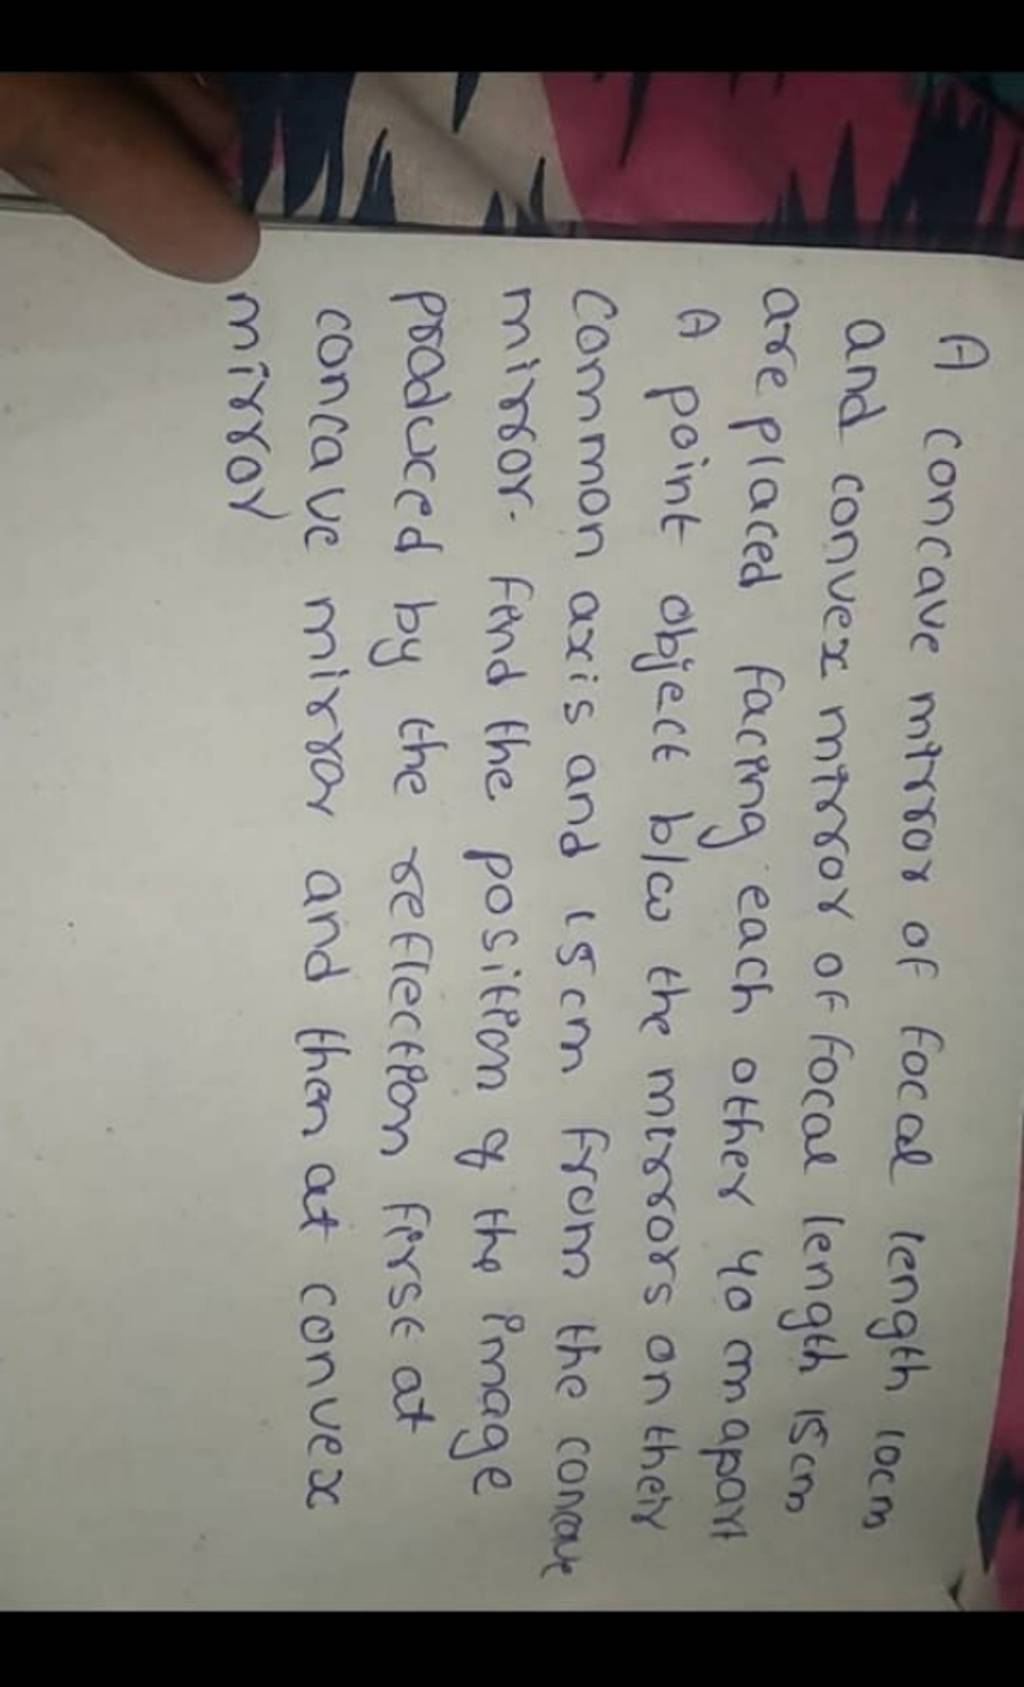 A concave mirror of focal length 10cm
and convex mirror of focal length 15cm
are placed facing each other 40 cm apart
A point object b/w the mirrors on their
Common axis and 15cm from the concave
mirror. find the position of the image
produced by the reflection first at
concave mirror and then at convex
mirror